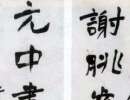 謝朓
元中書